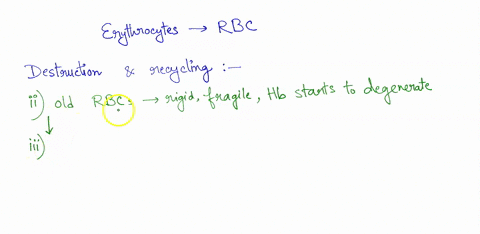 Erythrocytes → RBC
Destruction & recycling :—
ii) old RBCs → rigid, fragile, Hb starts to degenerate
↓
iii)